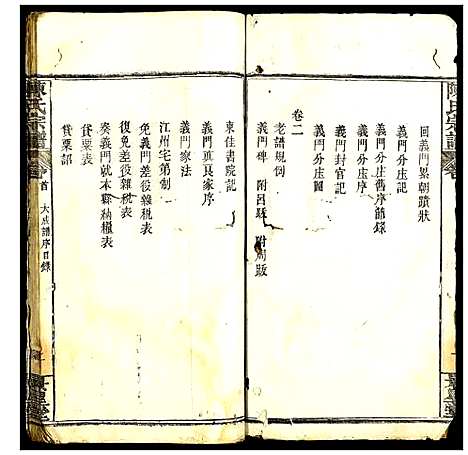 回義門累朝蹟狀
義門分庄記
義門分庄舊序節錄
義門分庄序
義門封官記
義門分庄圖
卷二
老譜規例
義門碑 附呂跋 附周跋
東佳書院記
義門真良家序
義門家法
江州宅第制
免義門差役雜稅表
復免差役雜稅表
奏義門就本縣納糧表
貸粟表
貸粟詔
陳氏宗譜
卷首 大成譜序目錄